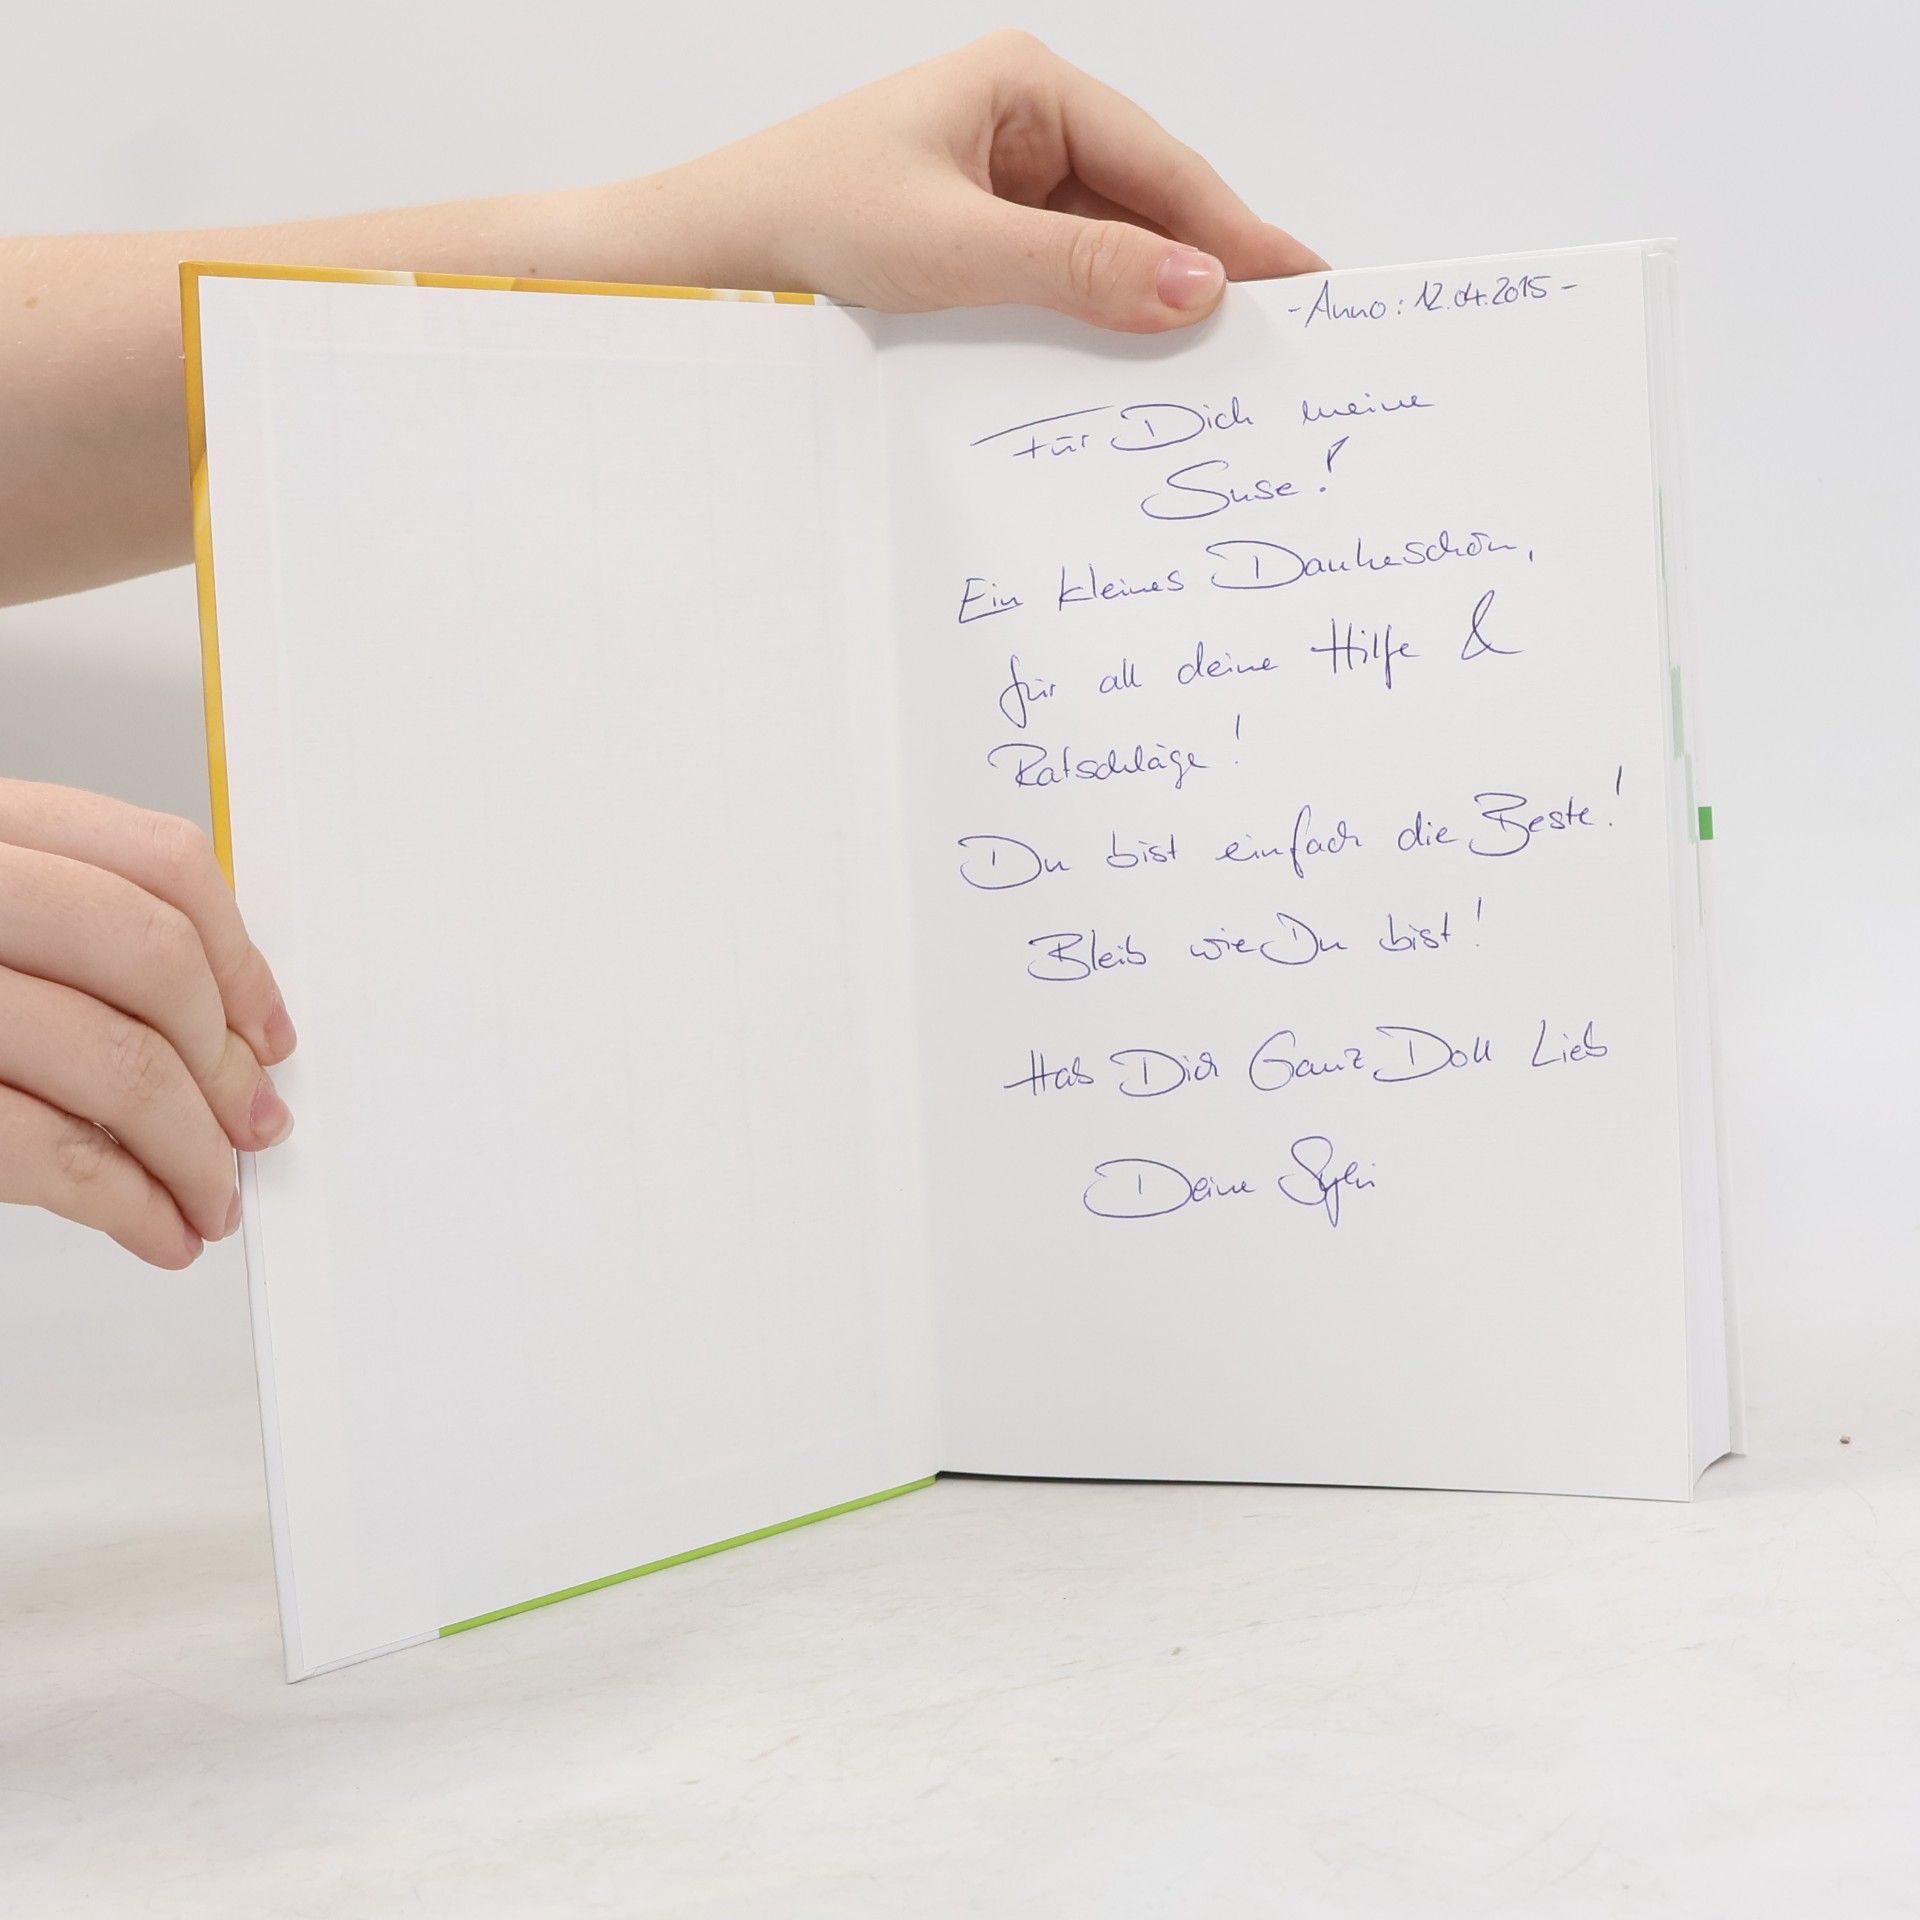 - Anno: 12.04.2015 -
Für Dich meine
Suse!
Ein kleines Dankeschön,
für all deine Hilfe &
Ratschläge!
Du bist einfach die Beste!
Bleib wie Du bist!
Hab Dich Ganz Doll Lieb
Deine